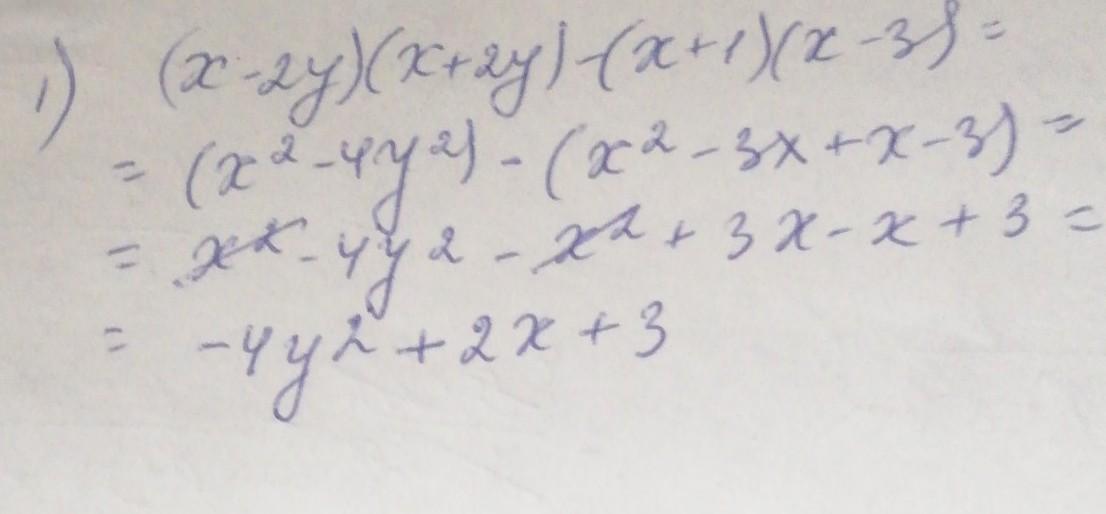 1) (x-2y)(x+2y)-(x+1)(x-3)=
= (x²-4y²)-(x²-3x+x-3)=
= x²-4y²-x²+3x-x+3=
= -4y²+2x+3